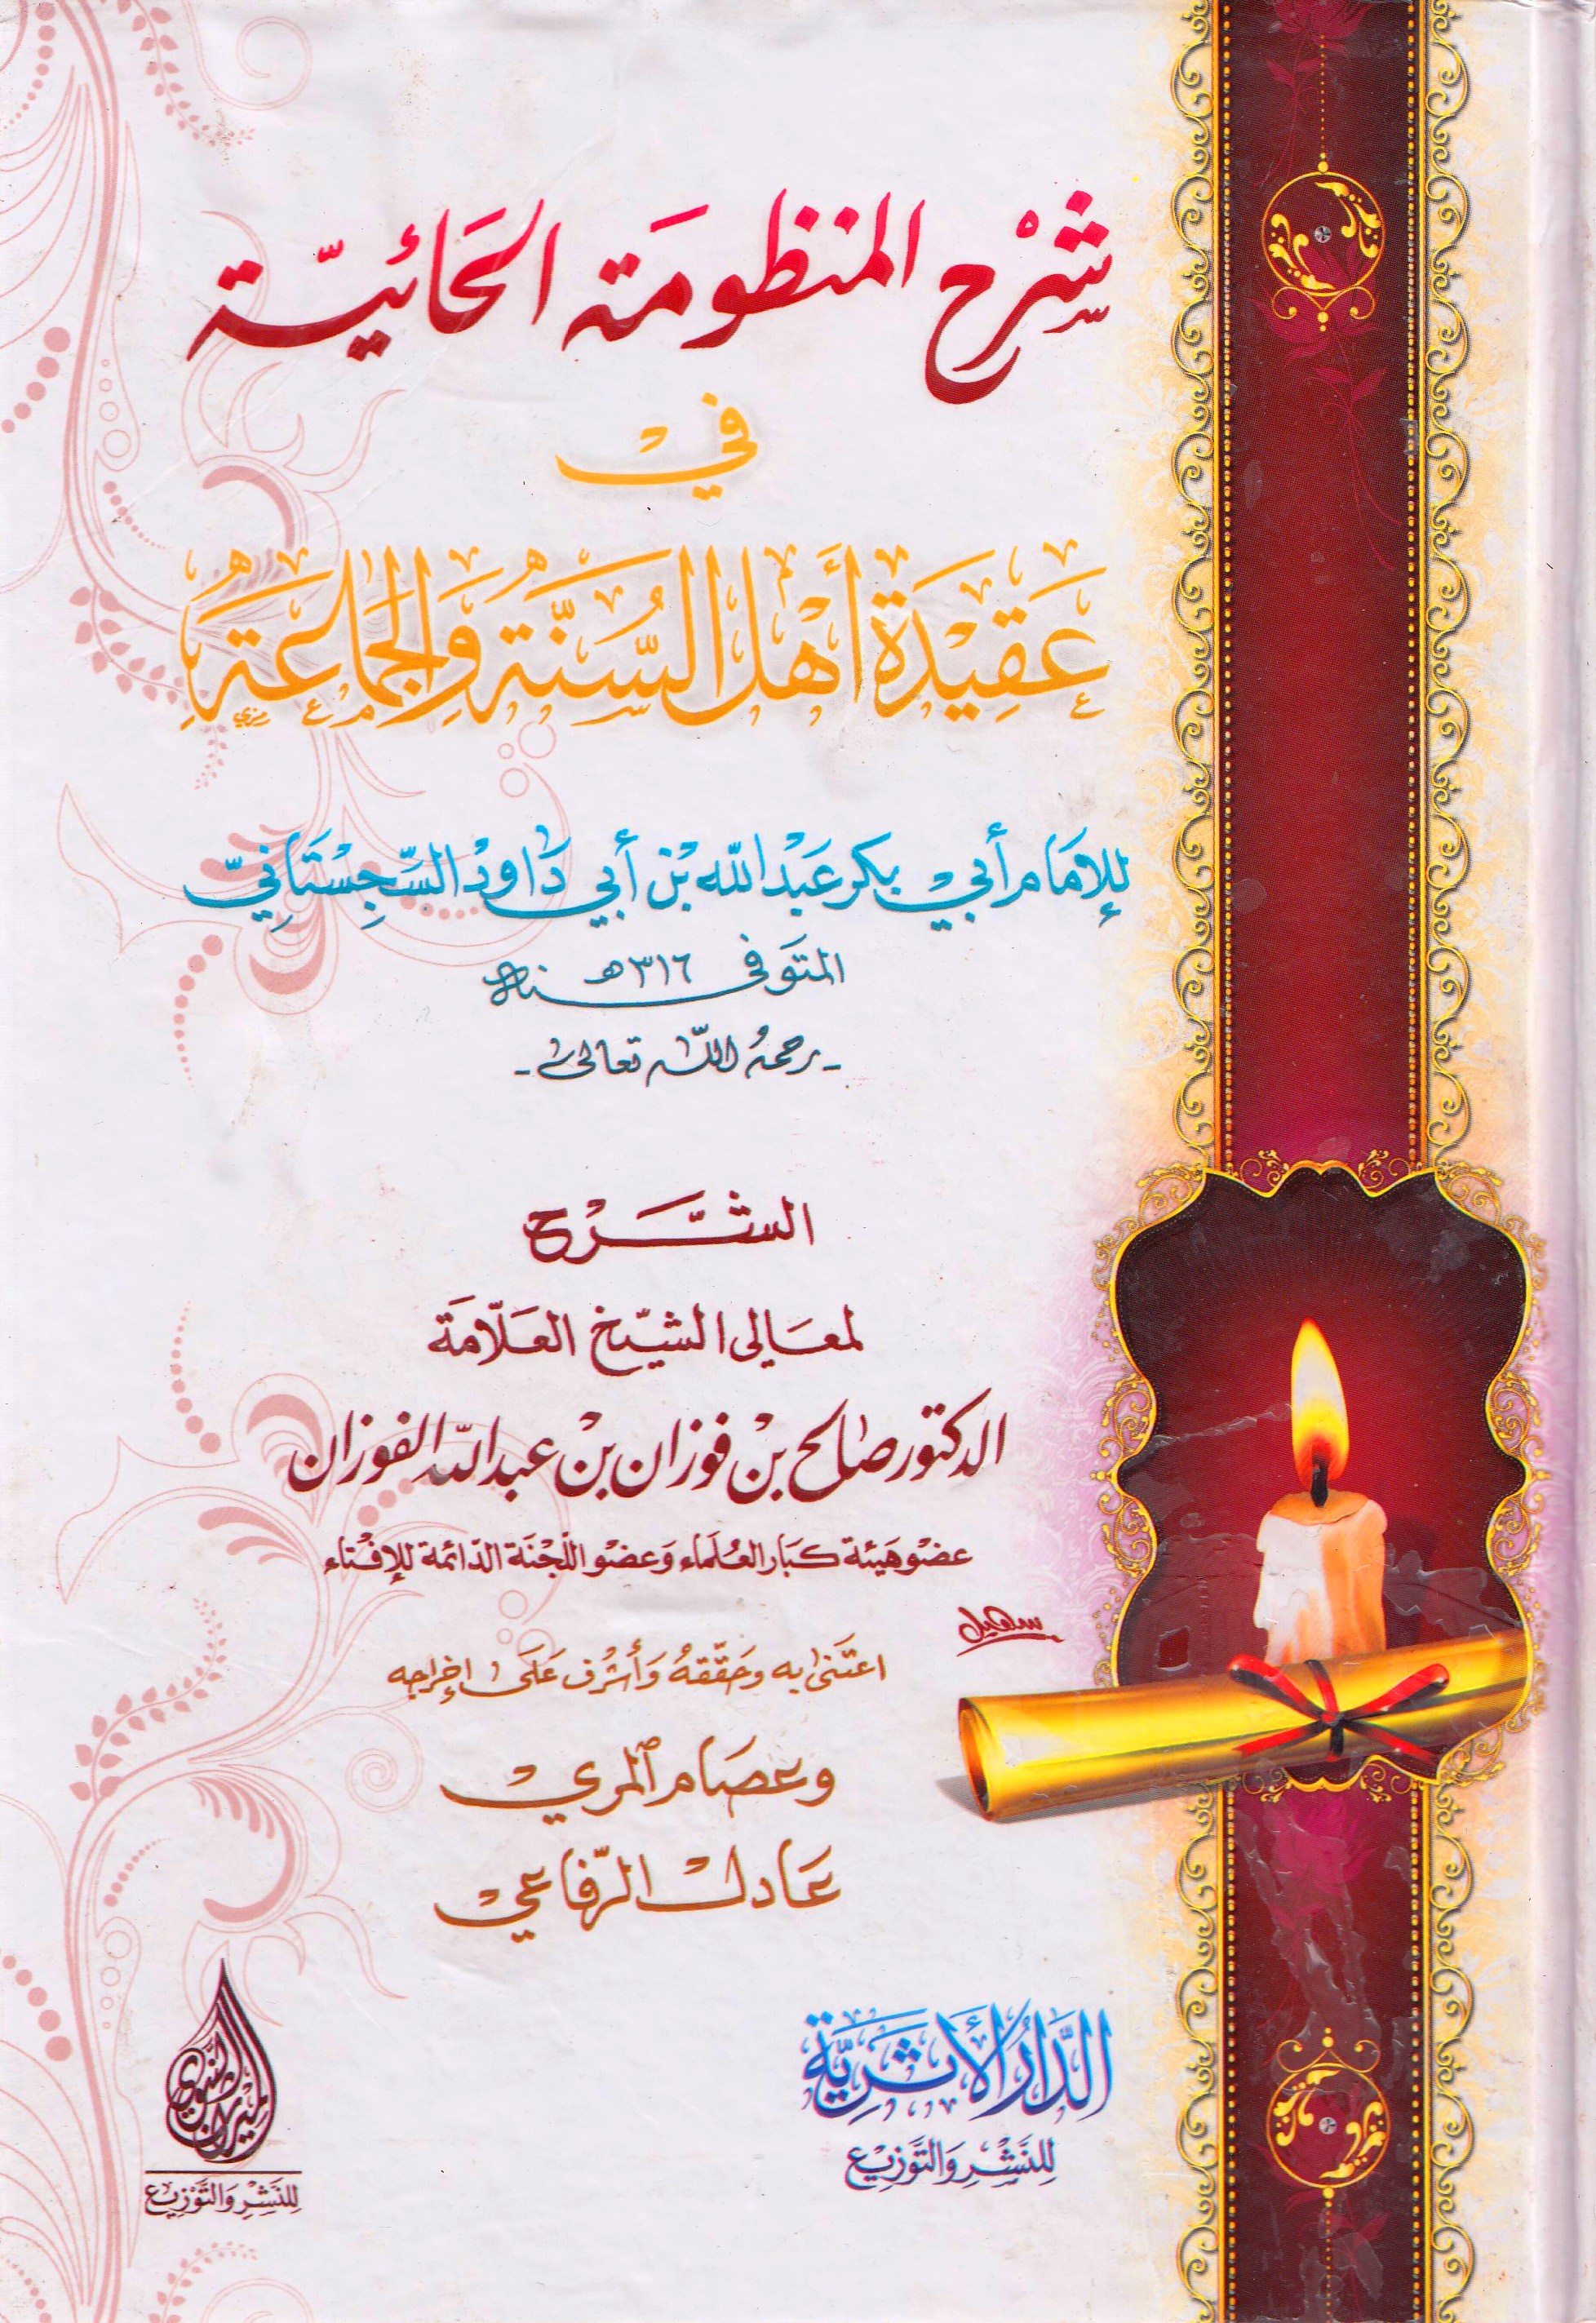 شَرْح المنظومَة الحَائيّة
في
عَقِيْدَة أَهْل السُّنَّة وَالجَمَاعَة
للإمَام أبي بكر عَبْد الله بْن أبي دَاوُد السِّجِسْتَانيّ
المتَوفى سنة ٣١٦هـ
- رحمهُ اللّٰه تعالىٰ -
الشَّرْح
لمعَالي الشّيخ العَلّامَة
الدكتور صَالح بن فوزان بن عبد الله الفوزان
عضو هَيئة كبَار العُلمَاء وَعضو اللّجْنَة الدّائمة للإفْتاء
سهيل
اعتَنىٰ به وحَقّقهُ وَأشرُف عَلىٰ إخراجه
وعصَام المري
عَادل الرّفاعي
الدَّارُ الأَثَرِيَّة
للنَّشْرِ وَالتَّوْزِيْع
الميراث النبوي
للنَّشْرِ وَالتَّوْزِيْع